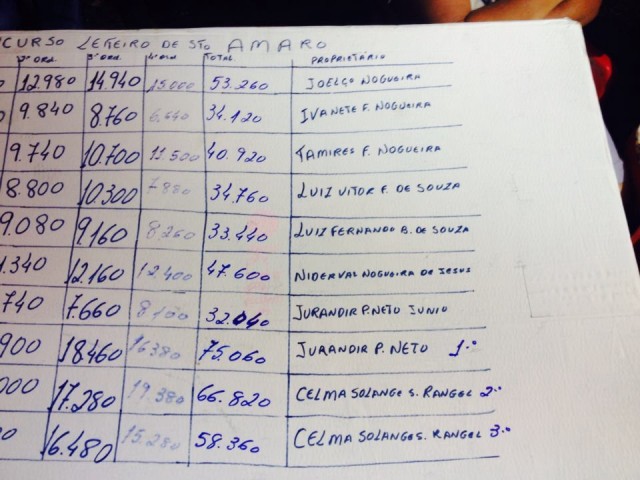 CURSO LEITEIRO DE STO AMARO
2ª ORD. 3ª ORD. 4ª ORD TOTAL PROPRIETÁRIO
12.980 14.940 15.000 53.260 JOELÇO NOGUEIRA
9.840 8.760 6.640 34.120 IVANETE F. NOGUEIRA
9.740 10.700 11.500 40.920 TAMIRES F. NOGUEIRA
8.800 10.300 7.880 34.760 LUIZ VITOR F. DE SOUZA
9.080 9.160 8.260 33.440 LUIZ FERNANDO B. DE SOUZA
.340 12.160 12.400 47.600 NIDERVAL NOGUEIRA DE JESUS
740 7.660 8.100 32.040 JURANDIR P. NETO JUNIO
900 18.460 16.380 75.060 JURANDIR P. NETO 1º
000 17.280 19.380 66.820 CELMA SOLANGE S. RANGEL 2º
0 16.480 15.280 58.360 CELMA SOLANGE S. RANGEL 3º